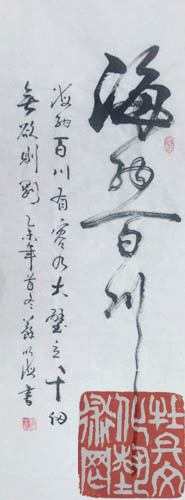 海纳百川
海纳百川有容乃大壁立千仞
无欲则刚乙未年首冬苏明海书